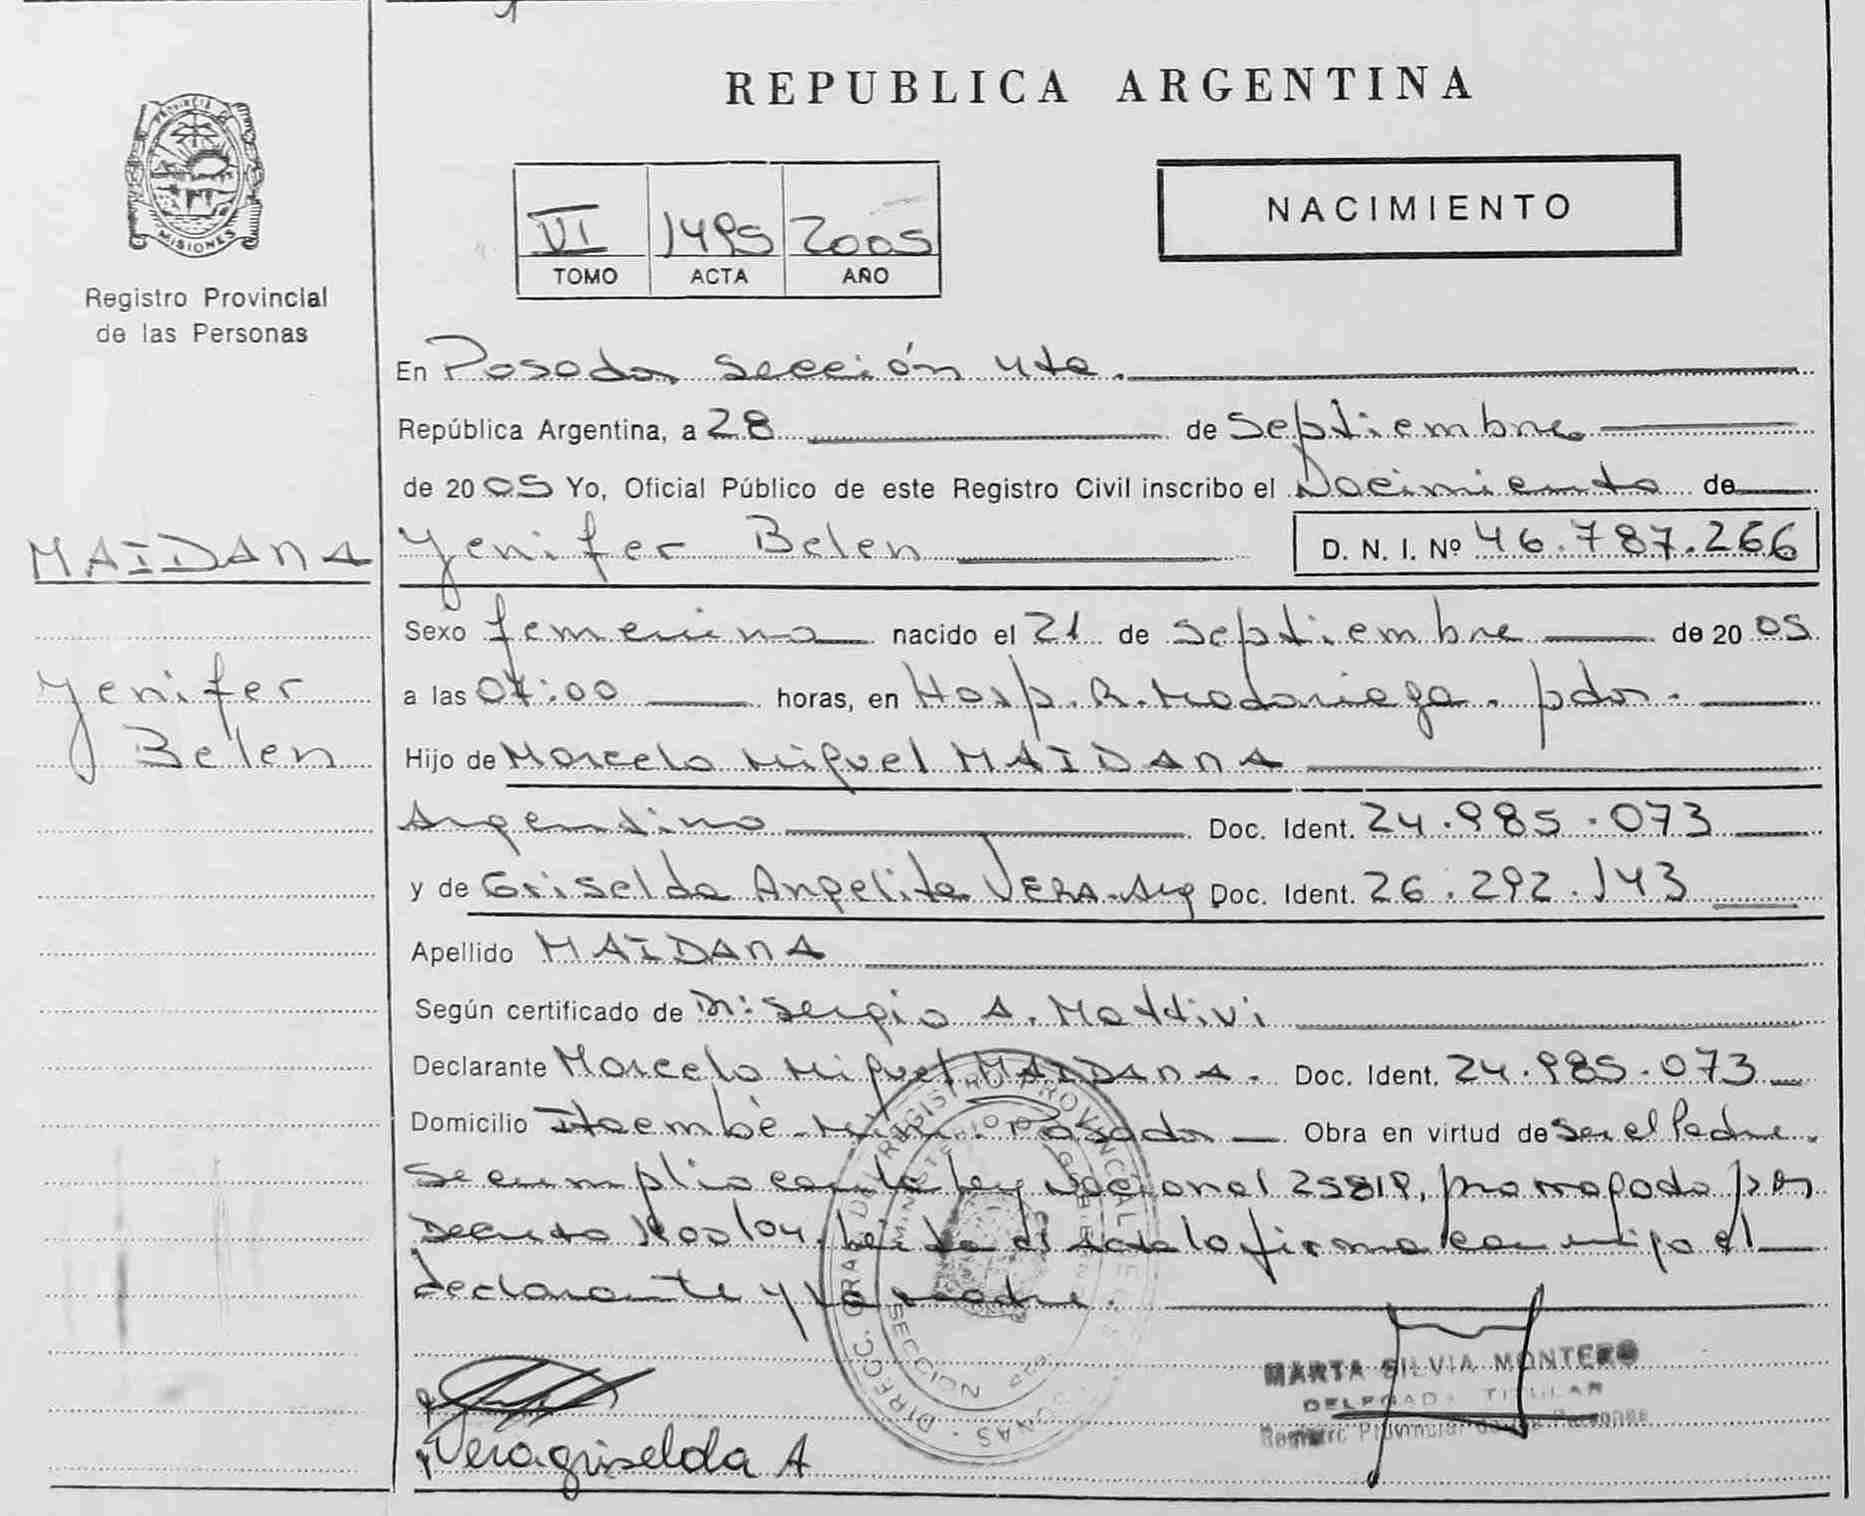 REPUBLICA ARGENTINA
PROVINCIA DE MISIONES
Registro Provincial
de las Personas
VI 1495 2005
TOMO ACTA AÑO
NACIMIENTO
En Posadas sección 4ta.
República Argentina, a 28 de Septiembre
de 2005 Yo, Oficial Público de este Registro Civil inscribo el Nacimiento de
MAIDANA
Yenifer Belen D. N. I. Nº 46.787.266
Sexo femenino nacido el 21 de Septiembre de 2005
Yenifer
Belen
a las 07:00 horas, en Hosp. R. Madariaga. pdas.
Hijo de Marcelo Miguel MAIDANA
Argentino Doc. Ident. 24.985.073
y de Griselda Angelita VERA-Arg Doc. Ident. 26.292.143
Apellido MAIDANA
Según certificado de Dr: Sergio A. Mattivi
Declarante Marcelo Miguel MAIDANA. Doc. Ident. 24.985.073
Domicilio Itaembé-Mini. Posadas Obra en virtud de Ser el Padre.
Se cumplio con la Ley Nacional 25819, prorrogada por
Decreto 1900/04. Leida el acta la firma conmigo el
declarante y la madre.
MARTA SILVIA MONTERO
DELEGADA TITULAR
Registro Provincial de las Personas
Vera griselda A